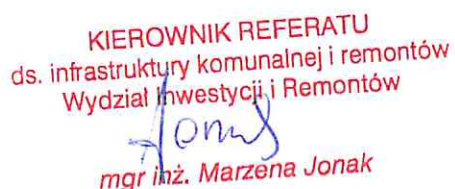 KIEROWNIK REFERATU
ds. infrastruktury komunalnej i remontów
Wydział Inwestycji i Remontów
mgr inż. Marzena Jonak